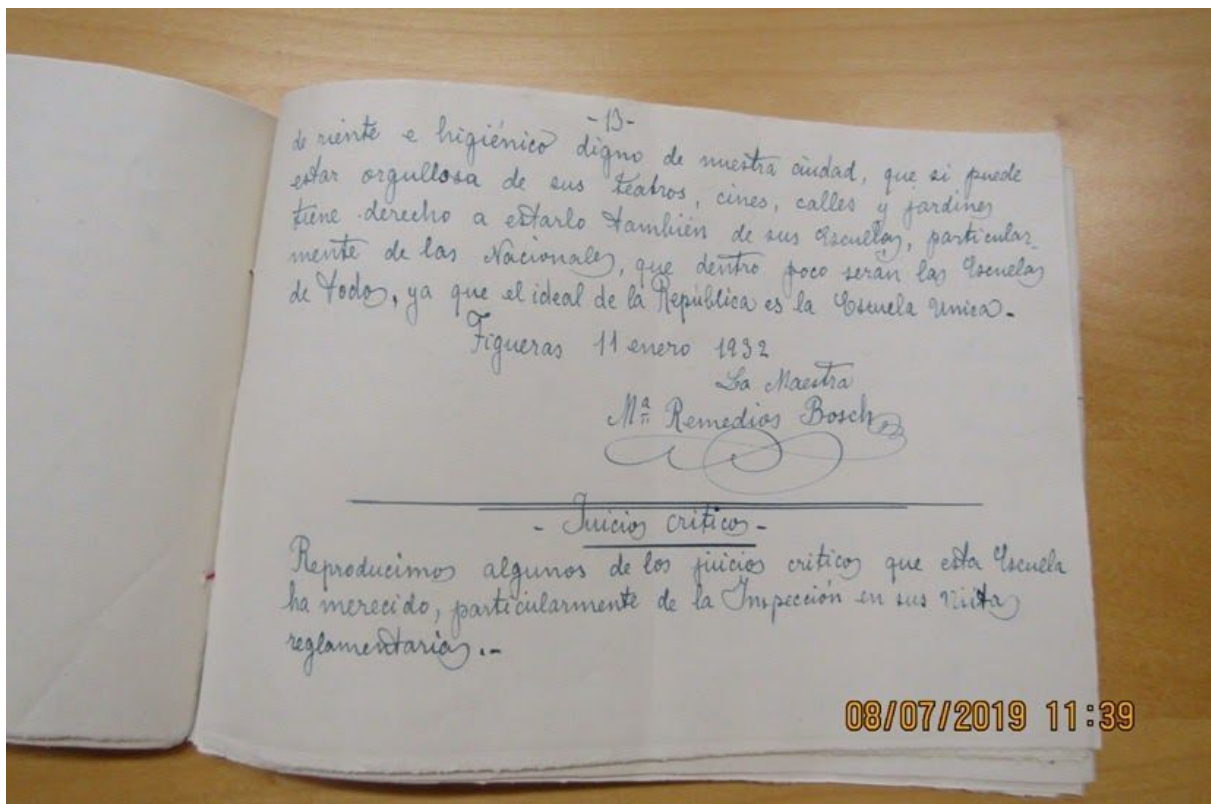 -13-
de riente e higiénico digno de nuestra ciudad, que si puede
estar orgullosa de sus teatros, cines, calles y jardines
tiene derecho a estarlo también de sus Escuelas, particular-
mente de las Nacionales, que dentro poco serán las Escuelas
de todos, ya que el ideal de la República es la Escuela Unica.-
Figueras 11 enero 1932
La Maestra
Mª Remedios Bosch
- Juicios criticos -
Reproducimos algunos de los juicios criticos que esta Escuela
ha merecido, particularmente de la Inspección en sus visitas
reglamentarias.-
08/07/2019 11:39